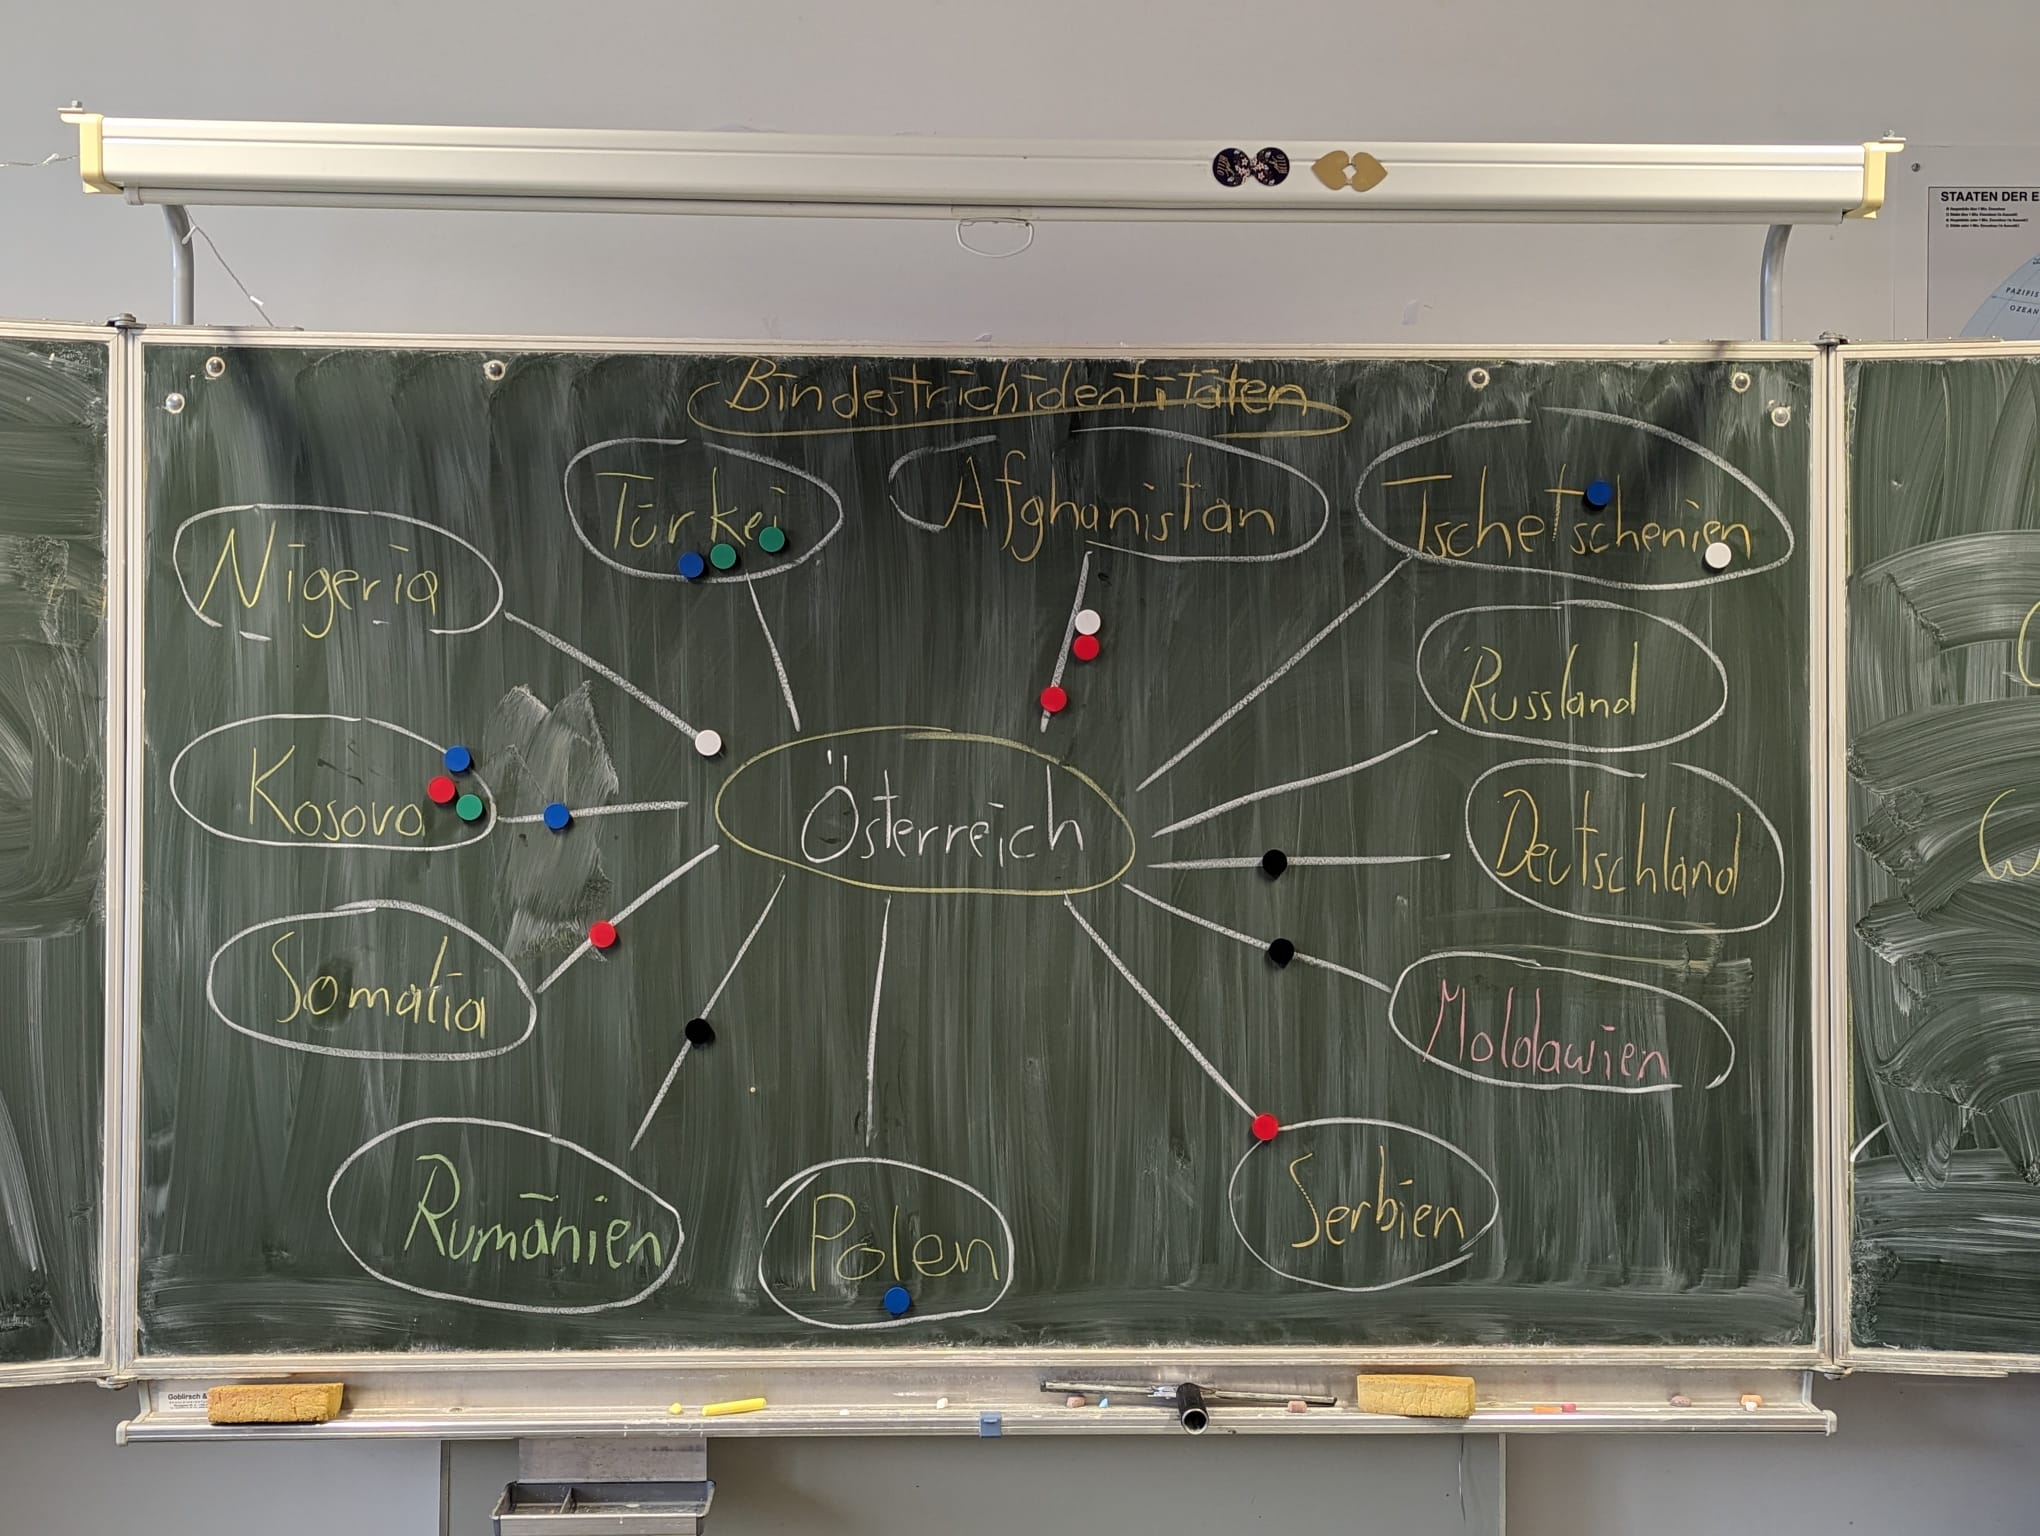 STAATEN DER E
PAZIFIS
OZEAN
Bindestrichidentitäten
Türkei
Afghanistan
Tschetschenien
Nigeria
Russland
Kosovo
Österreich
Deutschland
Somalia
Moldawien
Rumänien
Polen
Serbien
Goblirsch &